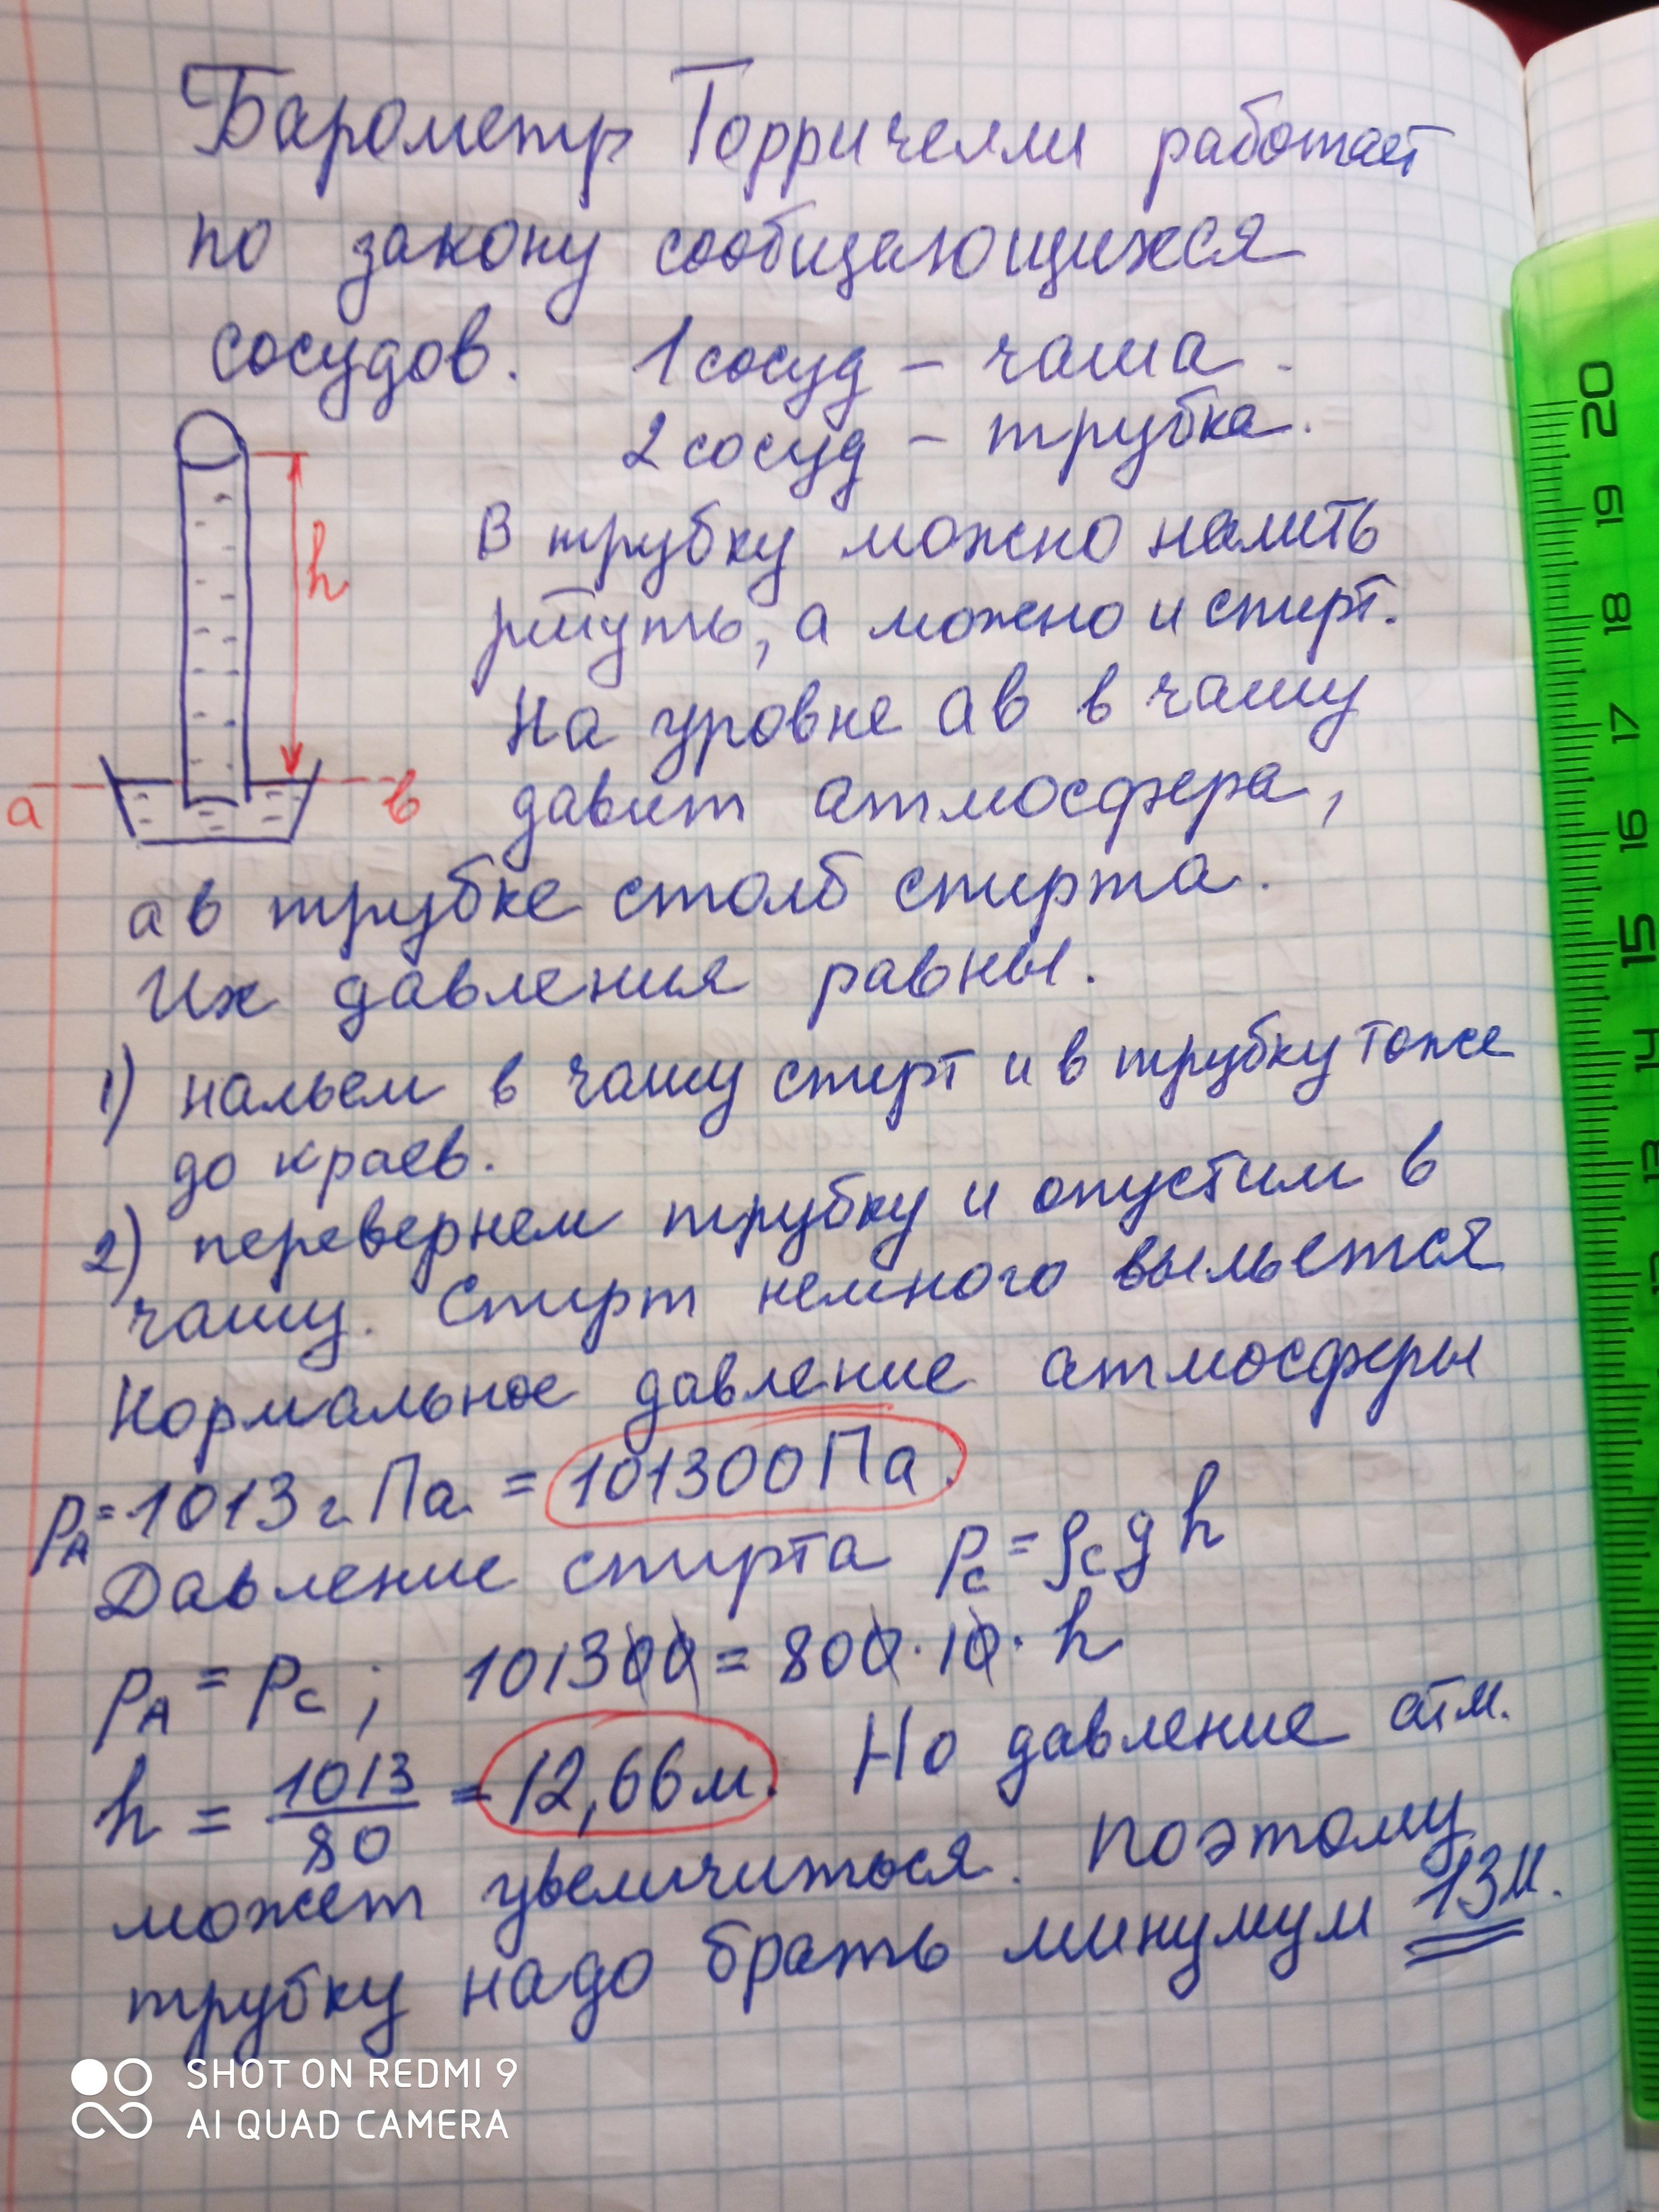 Барометр Торричелли работает
по закону сообщающихся
сосудов. 1 сосуд – чаша.
2 сосуд – трубка.
В трубку можно налить
ртуть, а можно и спирт.
h
На уровне ав в чашу
а в
давит атмосфера,
а в трубке столб спирта.
Их давления равны.
1) нальем в чашу спирт и в трубку тоже
до краев.
2) перевернем трубку и опустим в
чашу. Спирт немного выльется
Нормальное давление атмосферы
pA = 1013 гПа = 101300 Па.
Давление спирта pc = ρc g h
pA = pc ; 101300 = 800 · 10 · h
h = 1013/80 = 12,66 м. Но давление атм.
может увеличиться. Поэтому
трубку надо брать минумум 13 м.
20
19
18
17
16
15
14
13
SHOT ON REDMI 9
AI QUAD CAMERA